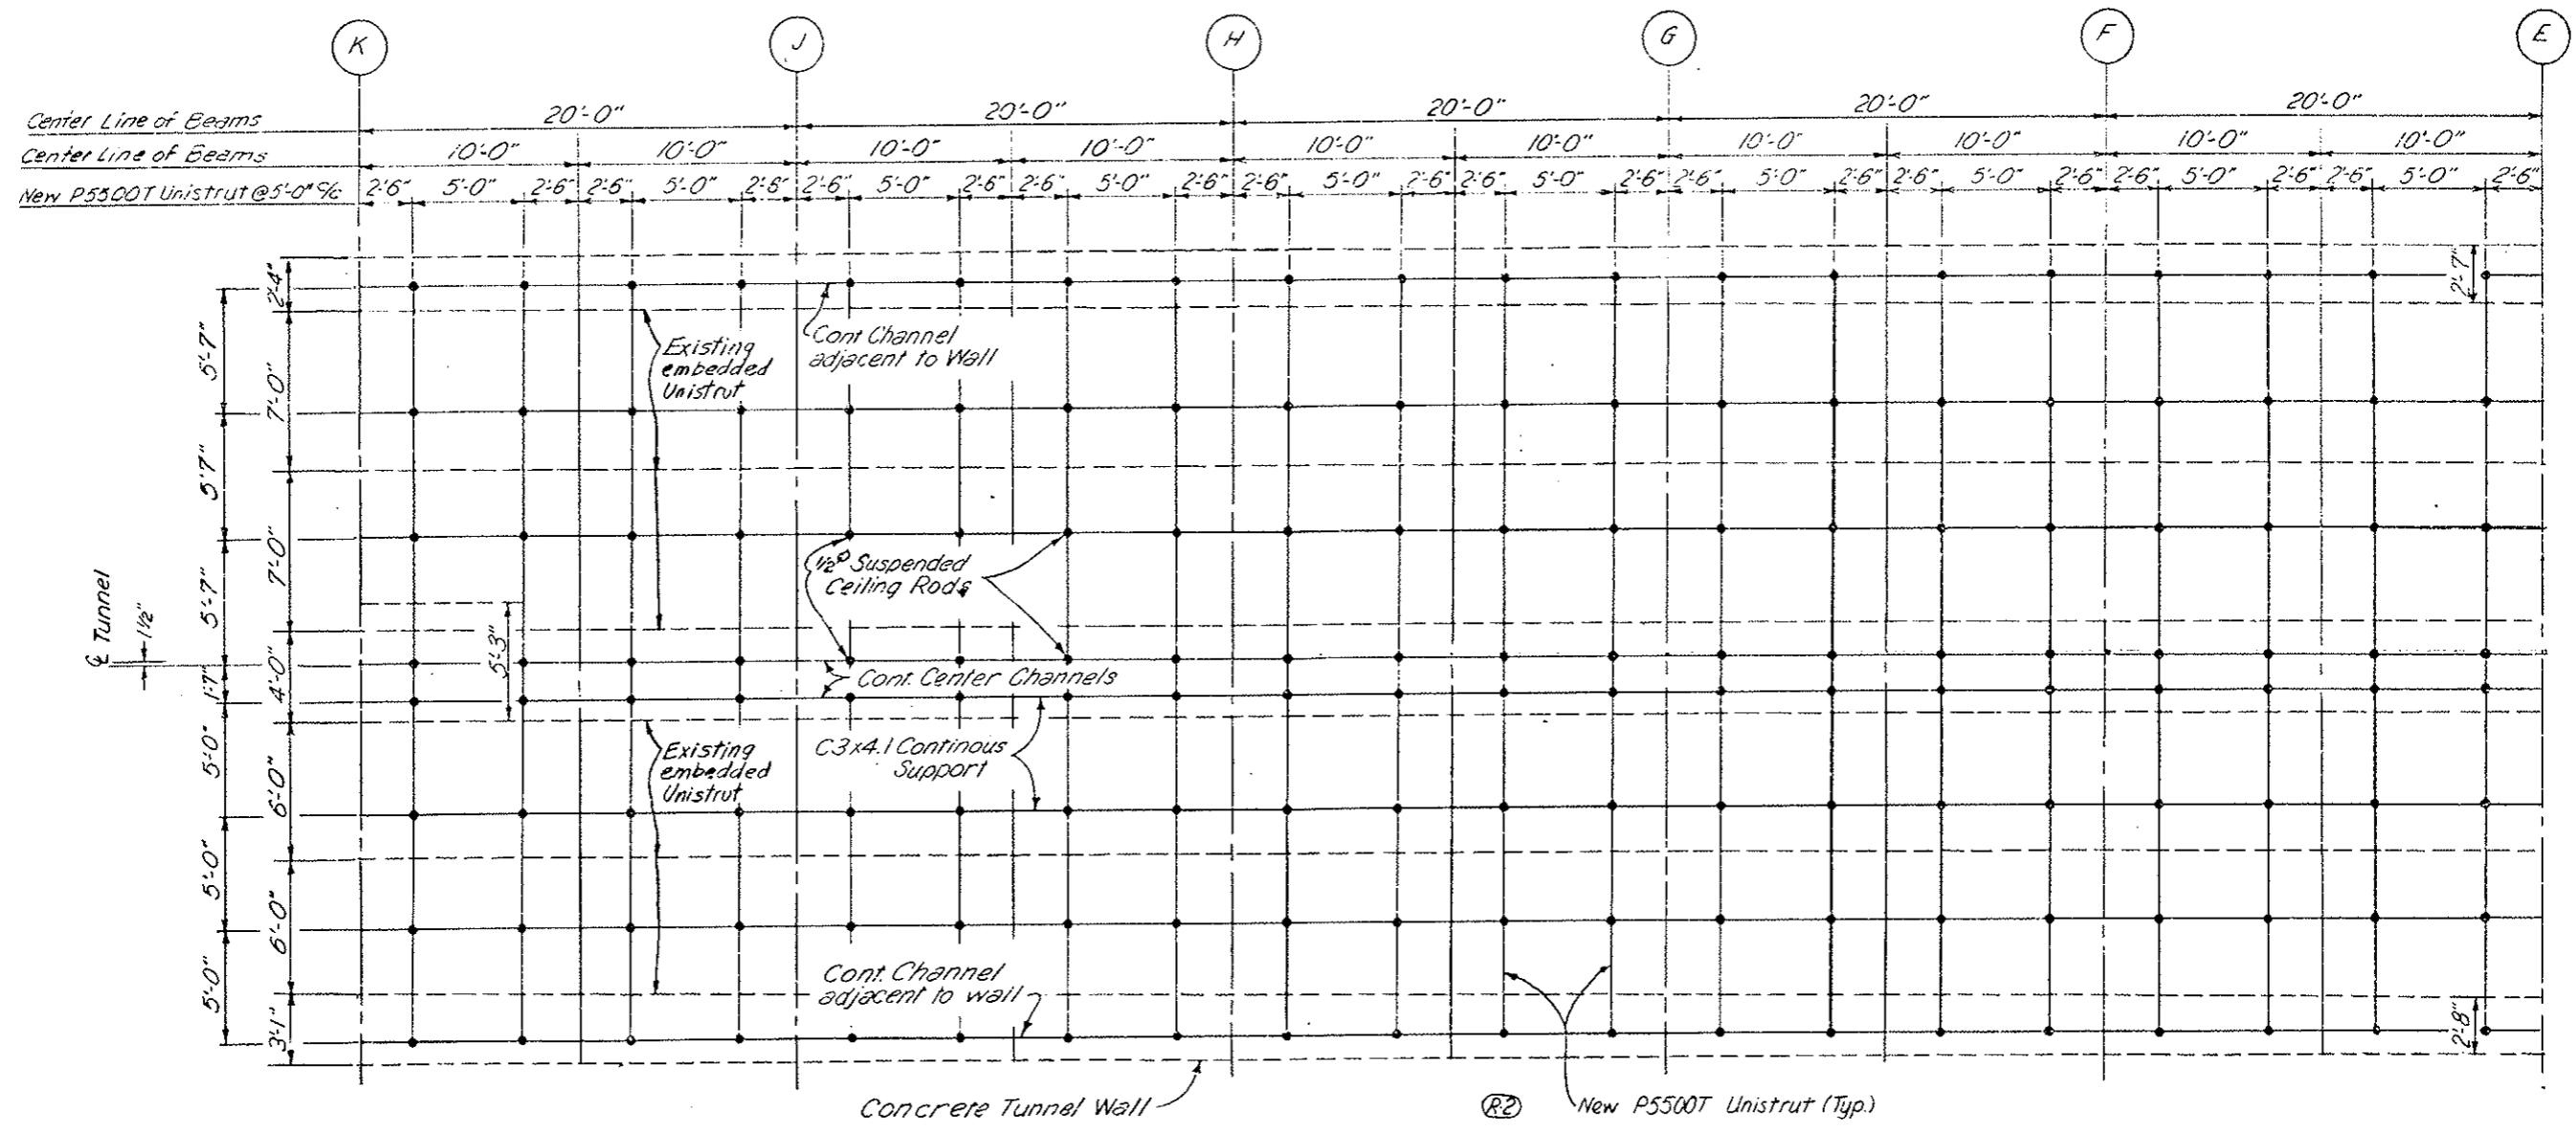 K J H G F E
Center Line of Beams 20'-0" 20'-0" 20'-0" 20'-0" 20'-0"
Center Line of Beams 10'-0" 10'-0" 10'-0" 10'-0" 10'-0" 10'-0" 10'-0" 10'-0" 10'-0" 10'-0"
New P5500T Unistrut @ 5'-0" c/c 2'-6" 5'-0" 2'-6" 2'-6" 5'-0" 2'-6" 2'-6" 5'-0" 2'-6" 2'-6" 5'-0" 2'-6" 2'-6" 5'-0" 2'-6" 2'-6" 5'-0" 2'-6" 2'-6" 5'-0" 2'-6" 2'-6" 5'-0" 2'-6" 2'-6" 5'-0" 2'-6" 2'-6" 5'-0" 2'-6"
2'-4"
2'-7"
5'-7"
7'-0"
Existing
embedded
Unistrut
Cont Channel
adjacent to Wall
5'-7"
7'-0"
5'-7"
½"⌀ Suspended
Ceiling Rods
℄ Tunnel
1½"
5'-3"
1'-7"
4'-0"
Cont. Center Channels
5'-0"
6'-0"
Existing
embedded
Unistrut
C3x4.1 Continous
Support
5'-0"
6'-0"
5'-0"
3'-1"
Cont. Channel
adjacent to wall
2'-8"
Concrete Tunnel Wall
R-2
New P5500T Unistrut (Typ.)